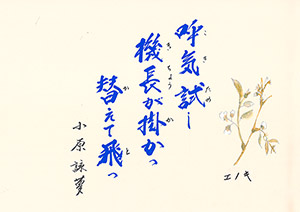 呼気試し
機長が掛かっ
替えて飛っ
小原 詠夢
エノキ